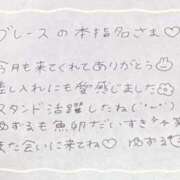 ブレースの本指名さま♡
今月も来てくれてありがとう
差し入れにも愛感じました
スタンド活躍したね(´˘`)
ゆずるも魚卵だいすき
また会いに来てね♡ ゆずる